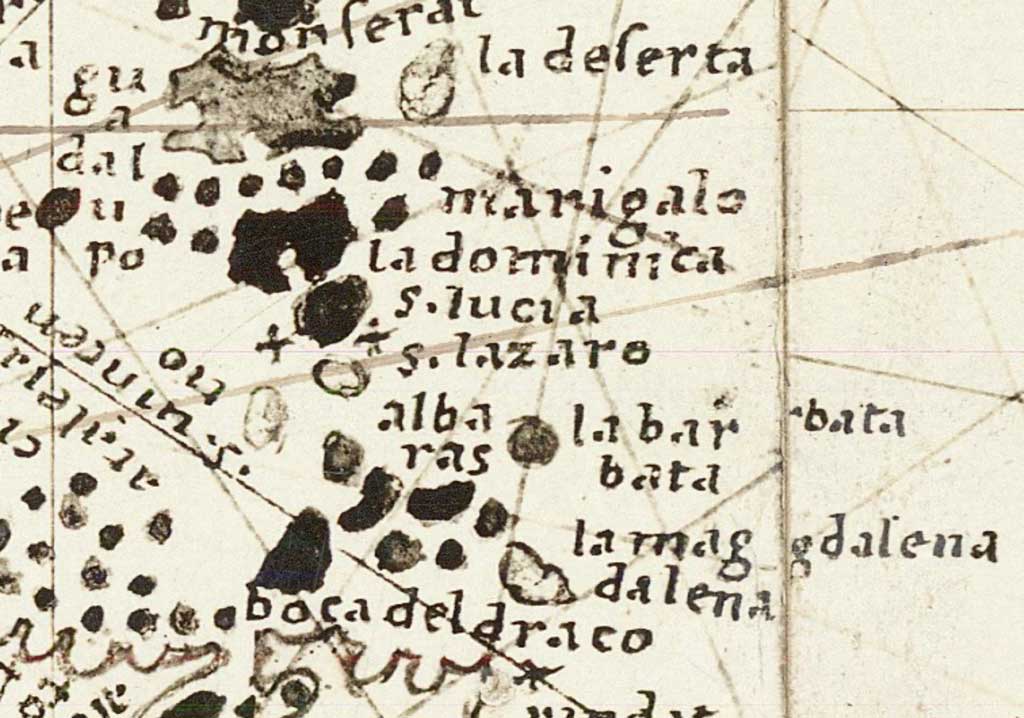 monserat
la deserta
gu
a
dal
u
po
marigalo
la dominica
s. lucia
s. lazaro
s. uincen
alba
ras
la bar
bata
rbata
la mag
dalena
gdalena
boca del draco